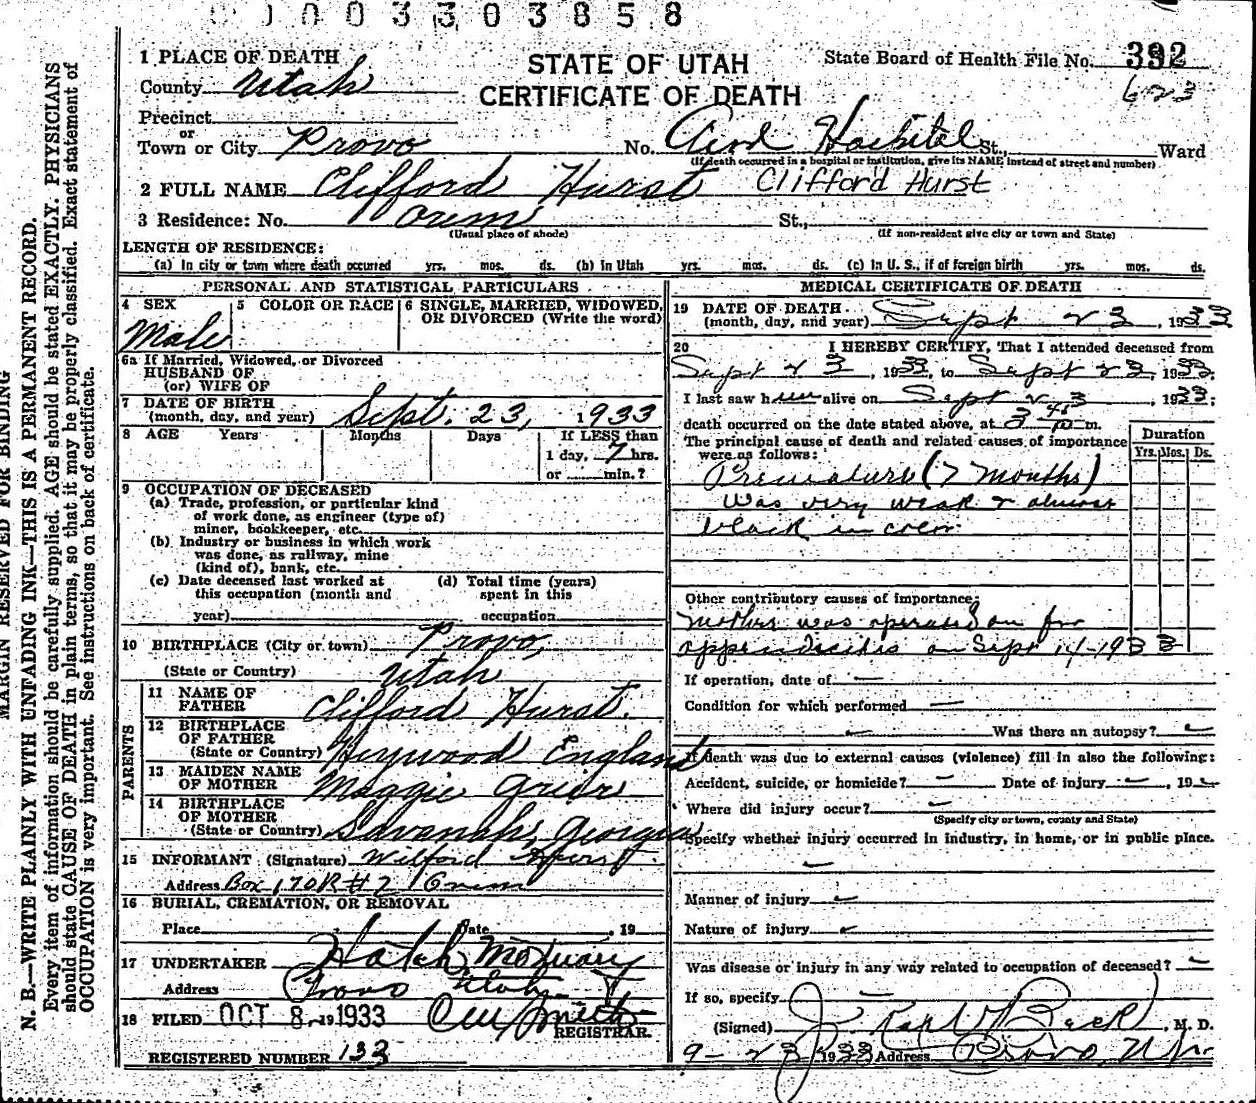 0 0 0 3 3 0 3 8 5 8
MARGIN RESERVED FOR BINDING
N. B.—WRITE PLAINLY WITH UNFADING INK—THIS IS A PERMANENT RECORD.
Every item of information should be carefully supplied. AGE should be stated EXACTLY. PHYSICIANS
should state CAUSE OF DEATH in plain terms, so that it may be properly classified. Exact statement of
OCCUPATION is very important. See instructions on back of certificate.
STATE OF UTAH
CERTIFICATE OF DEATH
State Board of Health File No. 392
623
1 PLACE OF DEATH
County Utah
Precinct
or
Town or City Provo No. Hospital St., Ward
(If death occurred in a hospital or institution, give its NAME instead of street and number)
2 FULL NAME Clifford Hurst Clifford Hurst
3 Residence: No. Orem St.,
(Usual place of abode) (If non-resident give city or town and State)
LENGTH OF RESIDENCE:
(a) In city or town where death occurred yrs. mos. ds. (b) In Utah yrs. mos. ds. (c) In U. S., if of foreign birth yrs. mos. ds.
PERSONAL AND STATISTICAL PARTICULARS
4 SEX 5 COLOR OR RACE 6 SINGLE, MARRIED, WIDOWED,
OR DIVORCED (Write the word)
Male
6a If Married, Widowed, or Divorced
HUSBAND OF
(or) WIFE OF
7 DATE OF BIRTH
(month, day, and year) Sept. 23, 1933
8 AGE Years Months Days If LESS than
1 day, 7 hrs.
or min.?
9 OCCUPATION OF DECEASED
(a) Trade, profession, or particular kind
of work done, as engineer (type of)
miner, bookkeeper, etc.
(b) Industry or business in which work
was done, as railway, mine
(kind of), bank, etc.
(c) Date deceased last worked at (d) Total time (years)
this occupation (month and spent in this
year) occupation
10 BIRTHPLACE (City or town) Provo,
(State or Country) Utah
PARENTS
11 NAME OF
FATHER Clifford Hurst.
12 BIRTHPLACE
OF FATHER
(State or Country) Heywood England
13 MAIDEN NAME
OF MOTHER Maggie Grier
14 BIRTHPLACE
OF MOTHER
(State or Country) Savanah, Georgia
15 INFORMANT (Signature) Wilford Hurst.
Address Box 170 R #2 Orem
16 BURIAL, CREMATION, OR REMOVAL
Place Date , 19
17 UNDERTAKER Hatch Mortuary
Address Provo Utah
18 FILED OCT 8, 19 1933
REGISTRAR.
REGISTERED NUMBER 133
MEDICAL CERTIFICATE OF DEATH
19 DATE OF DEATH
(month, day, and year) Sept 23, 1933
20 I HEREBY CERTIFY, That I attended deceased from
Sept 23, 1933, to Sept 23, 1933;
I last saw him alive on Sept 23, 1933;
death occurred on the date stated above, at 3 45 P m.
The principal cause of death and related causes of importance
were as follows:
Duration
Yrs. Mos. Ds.
Premature (7 months)
Was very weak & almost
black in color
Other contributory causes of importance:
Mother was operated on for
appendicitis on Sept 14-1933
If operation, date of —
Condition for which performed —
— Was there an autopsy? —
If death was due to external causes (violence) fill in also the following:
Accident, suicide, or homicide? — Date of injury —, 19
Where did injury occur? —
(Specify city or town, county and State)
Specify whether injury occurred in industry, in home, or in public place.
—
Manner of injury —
Nature of injury —
Was disease or injury in any way related to occupation of deceased? —
If so, specify —
(Signed) J. Karl Beck, M. D.
9-23 1933 Address Provo, Utah